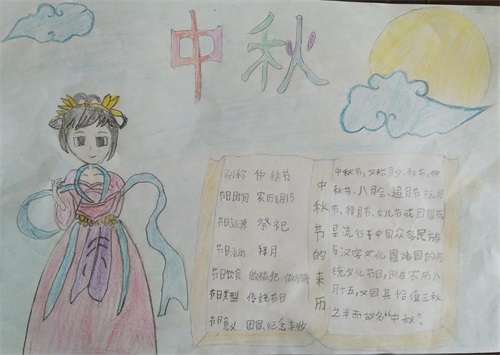 中秋
别称 仲秋节
节日时间 农历8月15
节日起源 祭祀
节日活动 拜月
节日饮食
节日类型 传统节日
节日意义 团圆,纪念,丰收
中秋节的来历
中秋节,又称月夕、秋节、仲
秋节、八月会、追月节、玩月
节、拜月节、女儿节或团圆节
是流行于中国众多民族
与汉字文化圈诸国的传
统文化节日,时在农历八
月十五;又因其恰值三秋
之半而故名“中秋”。